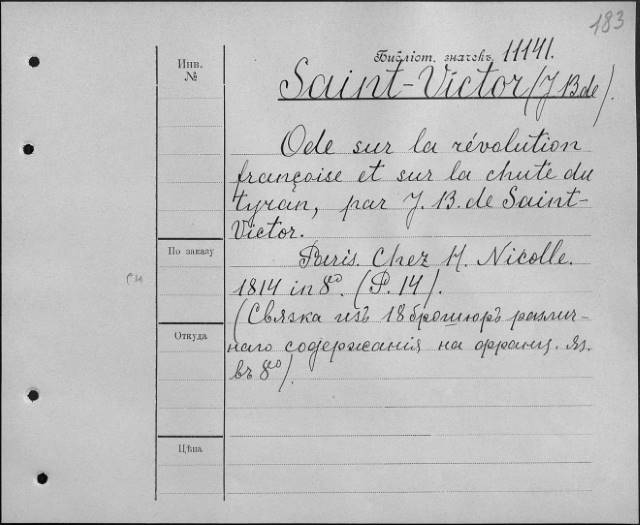 183
Библіот. значекъ 11141.
Инв.
№
Saint-Victor (J B de).
Ode sur la révolution
françoise et sur la chute du
tyran, par J. B. de Saint-
Victor.
По заказу
Paris. Chez H. Nicolle.
1814 in 8°. (P. 14).
(Связка изъ 18 брошюръ различ-
Откуда
наго содержанія на франц. яз.
въ 8°).
Цѣна